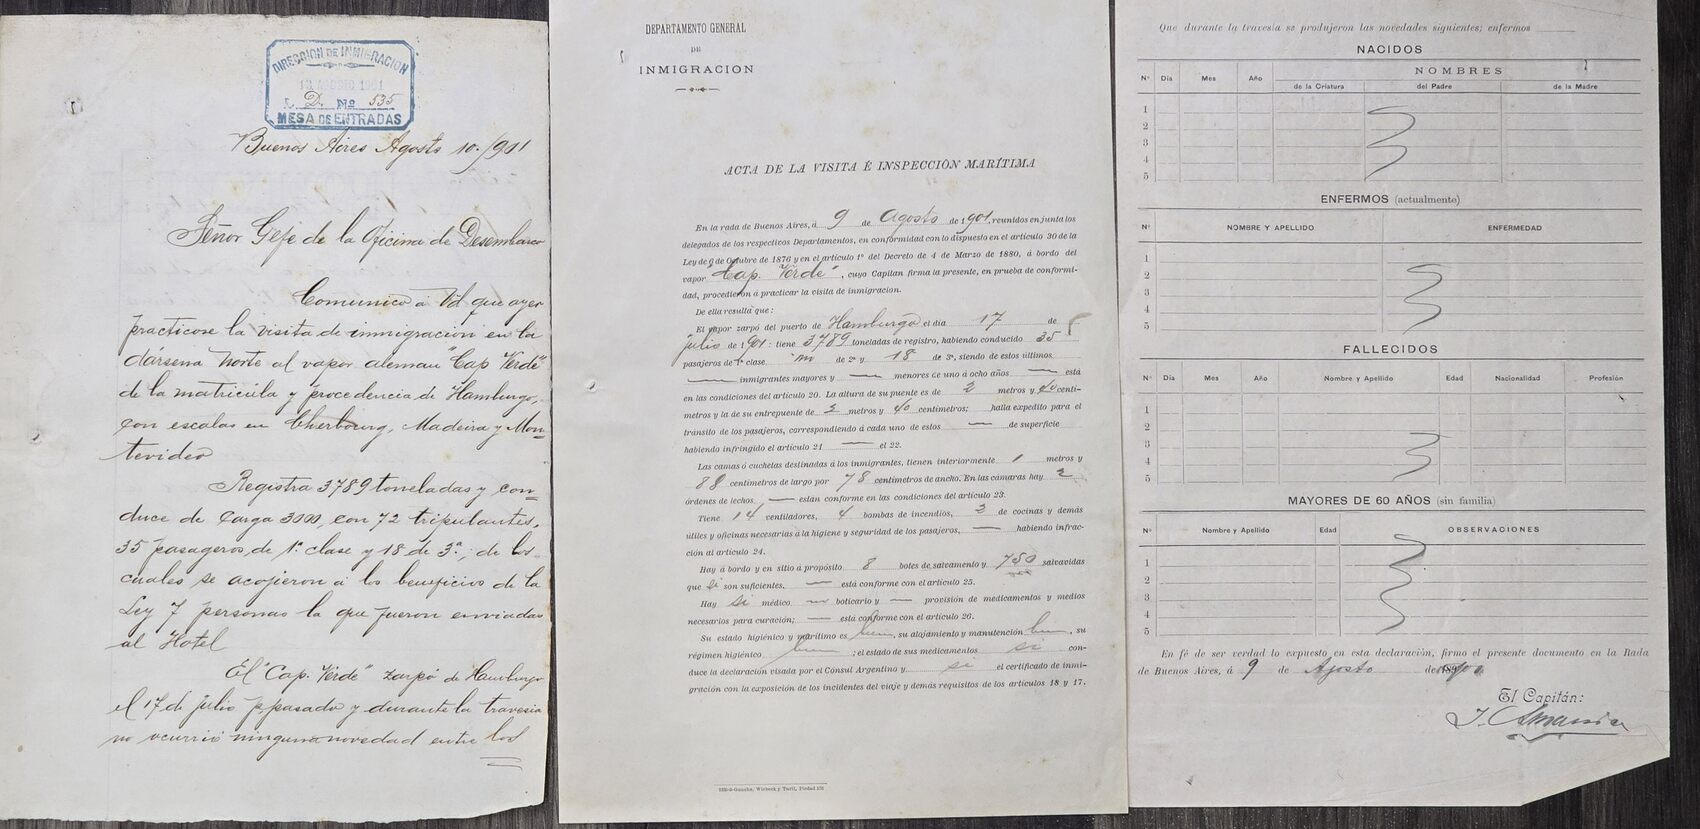 DIRECCION DE INMIGRACION
13 AGOSTO 1901
L. D. Nº 535
MESA DE ENTRADAS
Buenos Aires Agosto 10./901
Señor Gefe de la Oficina de Desembarco
Comunico a Vd que ayer
practicose la visita de inmigracion en la
dársena Norte al vapor aleman "Cap Verde"
de la matricúla y procedencia de Hamburgo,
con escalas en Cherbourg, Madeira y Mon=
tevideo
Registra 3789 toneladas y con=
duce de Carga 3000, con 72 tripulantes,
35 pasageros, de 1ª. clase y 18 de 3ª.; de los
cuales se acojieron á los beneficios de la
Ley 7 personas la que fueron enviadas
al Hotel
El "Cap. Verde" zarpó de Hamburgo
el 17 de julio p. pasado y durante la travesia
no ocurrió ninguna novedad entre los
DEPARTAMENTO GENERAL
DE
INMIGRACION
ACTA DE LA VISITA É INSPECCIÓN MARÍTIMA
En la rada de Buenos Aires, á 9 de Agosto de 1901, reunidos en junta los
delegados de los respectivos Departamentos, en conformidad con lo dispuesto en el artículo 30 de la
Ley de 6 de Octubre de 1876 y en el artículo 1º del Decreto de 4 de Marzo de 1880, á bordo del
vapor "Cap. Verde", cuyo Capitan firma la presente, en prueba de conformi-
dad, procedieron á practicar la visita de inmigracion.
De ella resulta que:
El vapor zarpó del puerto de Hamburgo el día 17 de
julio de 1901: tiene 3789 toneladas de registro, habiendo conducido 35
pasajeros de 1ª clase no de 2ª y 18 de 3ª, siendo de estos últimos
inmigrantes mayores y menores de uno á ocho años está
en las condiciones del artículo 20. La altura de su puente es de 2 metros y 40 centí-
metros y la de su entrepuente de 2 metros y 40 centímetros; halla expedito para el
tránsito de los pasajeros, correspondiendo á cada uno de estos de superficie
habiendo infringido el artículo 21 el 22.
Las camas ó cuchetas destinadas á los inmigrantes, tienen interiormente 1 metros y
88 centímetros de largo por 78 centímetros de ancho. En las cámaras hay 2
órdenes de lechos, están conforme en las condiciones del artículo 23.
Tiene 14 ventiladores, 4 bombas de incendios, 2 de cocinas y demás
útiles y oficinas necesarias á la higiene y seguridad de los pasajeros, habiendo infrac-
ción al artículo 24.
Hay á bordo y en sitio á propósito 8 botes de salvamento y 750 salvavidas
que si son suficientes, está conforme con el artículo 25.
Hay si médico no boticario y provisión de medicamentos y medios
necesarios para curación; está conforme con el artículo 26.
Su estado higiénico y marítimo es buen, su alojamiento y manutención buen, su
régimen higiénico buen; el estado de sus medicamentos si con-
duce la declaración visada por el Cónsul Argentino y si el certificado de inmi-
gración con la exposición de los incidentes del viaje y demás requisitos de los artículos 18 y 17.
Gunche, Wiebeck y Turtl, Piedad
Que durante la travesía se produjeron las novedades siguientes; enfermos
NACIDOS
Nº Día Mes Año NOMBRES
de la Criatura del Padre de la Madre
1
2
3
4
5
ENFERMOS (actualmente)
Nº NOMBRE Y APELLIDO ENFERMEDAD
1
2
3
4
5
FALLECIDOS
Nº Día Mes Año Nombre y Apellido Edad Nacionalidad Profesión
1
2
3
4
5
MAYORES DE 60 AÑOS (sin familia)
Nº Nombre y Apellido Edad OBSERVACIONES
1
2
3
4
5
En fé de ser verdad lo expuesto en esta declaración, firmo el presente documento en la Rada
de Buenos Aires, á 9 de Agosto de
El Capitán: